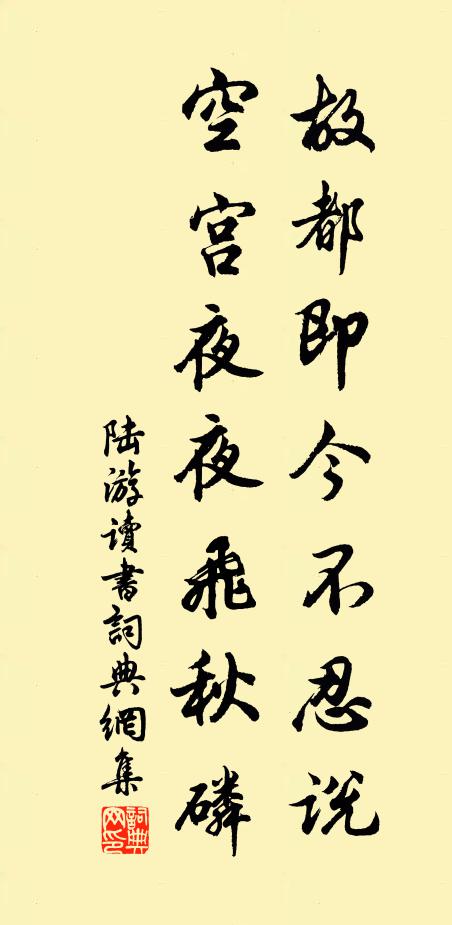 故都即今不忍説
空宫夜夜飛秋磷
陆游讀書詞典網集
詞典網印